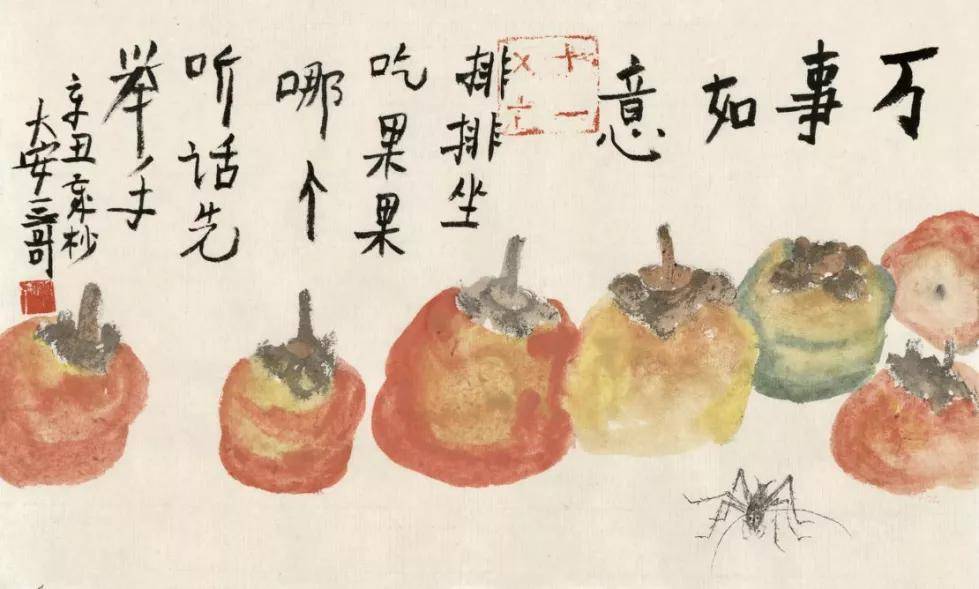 万事如意
排排坐
吃果果
哪个
听话先
举手
辛丑秋杪
大安三哥